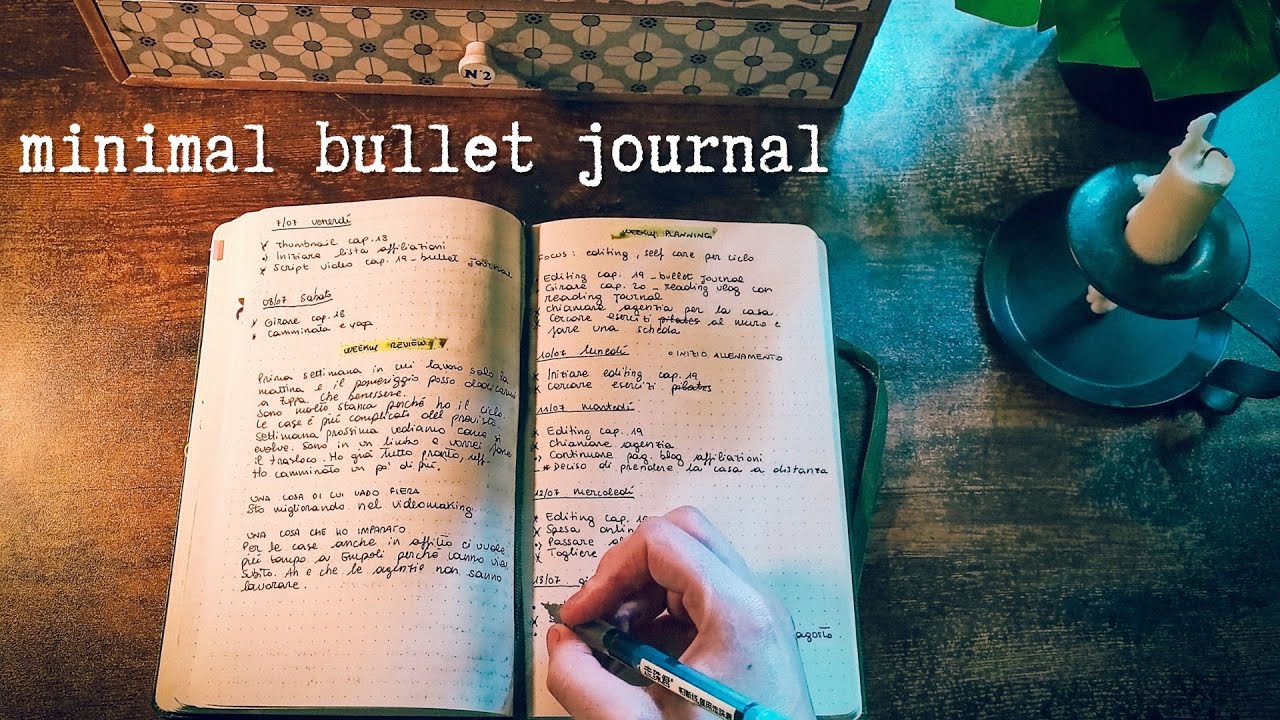 N°2
minimal bullet journal
7/07 venerdí
x Thumbnail cap.18
Iniziare lista affiliazioni
x Script video cap. 19 - bullet journal
08/07 sabato
x Girare cap. 18
x camminata e yoga
WEEKLY REVIEW
Prima settimana in cui lavoro solo la
mattina e il pomeriggio posso dedicarmi
a Zippa, che benessere.
Sono molto stanca perché ho il ciclo.
Le case è piú complicato del previsto.
Settimana prossima vediamo come si
evolve. Sono in un limbo e vorrei fare
il trasloco. Ho giá tutto pronto, uff.
Ho camminato un po' di piú.
UNA COSA DI CUI VADO FIERA
Sto migliorando nel videomaking.
UNA COSA CHE HO IMPARATO
Per le case anche in affitto ci vuole
piú tempo a Empoli perché vanno via
subito. Ah e che le agenzie non sanno
lavorare.
WEEKLY PLANNING
Focus: editing, self care per ciclo
Editing cap. 19 - bullet journal
Girare cap. 20 - reading vlog con
reading journal
x chiamare agenzia per la casa
x Cercare esercizi pilates al muro e
x fare una scheda
10/07 lunedí o INIZIO ALLENAMENTO
x Iniziare editing cap. 19
x cercare esercizi pilates
11/07 martedí
x Editing cap. 19
x Chiamare agenzia
Continuare pag. blog affiliazioni
* Deciso di prendere la casa a distanza
12/07 mercoledí
x Editing cap. 19
x Spesa online
Passare
x Togliere
13/07
agosto